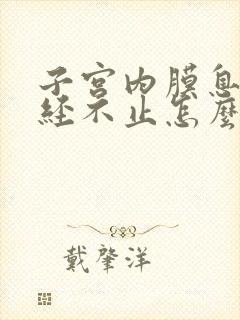 子宫内膜息
经不止怎麽
戴肇洋